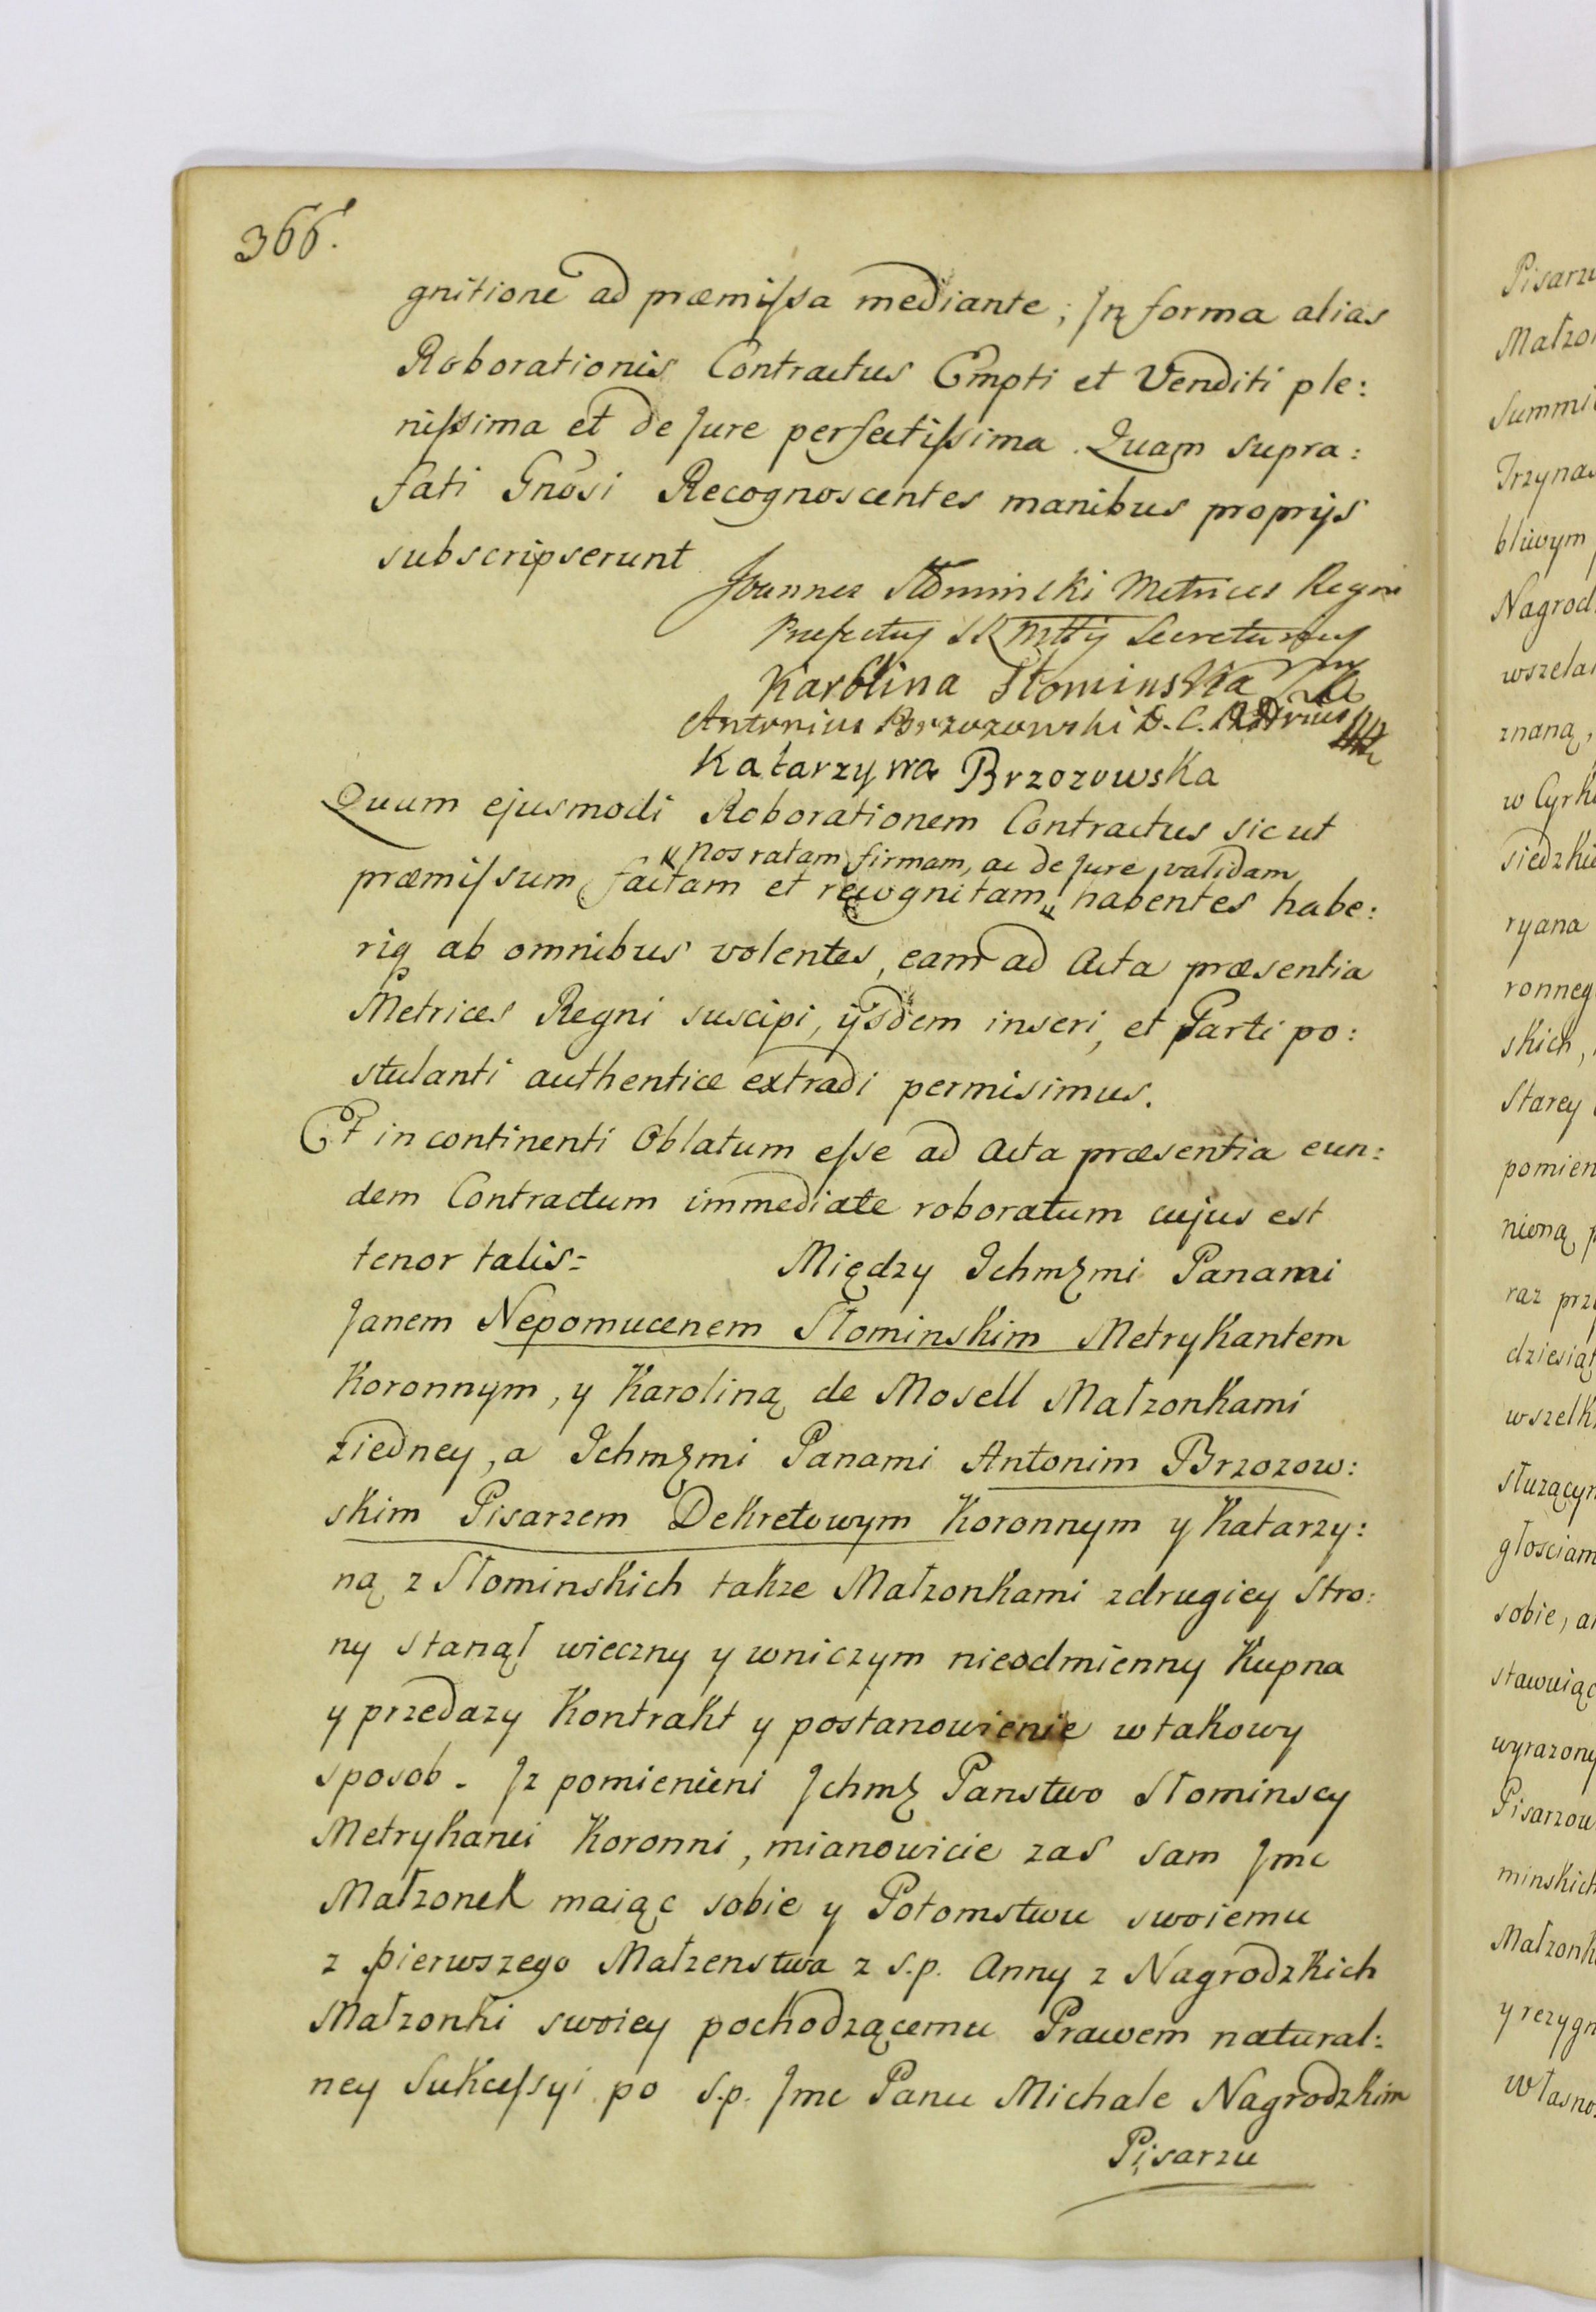 366.
gnitione ad præmissa mediante; In forma alias
Roborationis Contractus Empti et Venditi ple:
nissima et de Jure perfectissima. Quam supra:
fati Gnosi Recognoscentes manibus proprijs
subscripserunt
Joannes Słominski Metrices Regni
Præfectus Secretarius
Karolina Słominska
Antonius Brzozowski
Katarzyna Brzozowska
Quam ejusmodi Roborationem Contractus sic ut
nos ratam firmam, ac de Jure validam
præmissum factam et recognitam habentes habe:
riq ab omnibus volentes, eam ad Acta præsentia
Metrices Regni suscipi, ijsdem inseri, et Parti po:
stulanti authentice extradi permisimus.
Et in continenti Oblatum esse ad Acta præsentia eun:
dem Contractum immediate roboratum cujus est
tenor talis= Między Ichmęmi Panami
Janem Nepomucenem Słominskim Metrykantem
Koronnym, y Karoliną de Mosell Małzonkami
ziedney, a Ichmęmi Panami Antonim Brzozow:
skim Pisarzem Dekretowym Koronnym y Katarzy:
ną z Słominskich takze Małzonkami zdrugiey Stro:
ny stanął wieczny y wniczym nieodmienny Kupna
y przedazy Kontrakt y postanowienie w takowy
sposob. Iz pomienieni Jchmę Panstwo Słominscy
Metrykanci Koronni, mianowicie zas sam Jmc
Małzonek maiąc sobie y Potomstwu swoiemu
z pierwszego Małzenstwa z s.p. Anny z Nagrodzkich
Małzonki swoiey pochodzącemu Prawem natural:
ney Sukcessyi po s.p. Jmc Panu Michale Nagrodzkim
Pisarzu
Pisarzu
Summi
bliwym
w Cyrk
ryana
ronneg
skich,
Starey
pomien
nioną
raz prz
dziesiąt
wszelk
głosciam
wyrazony
Pisarzow
minskich
y rezygn